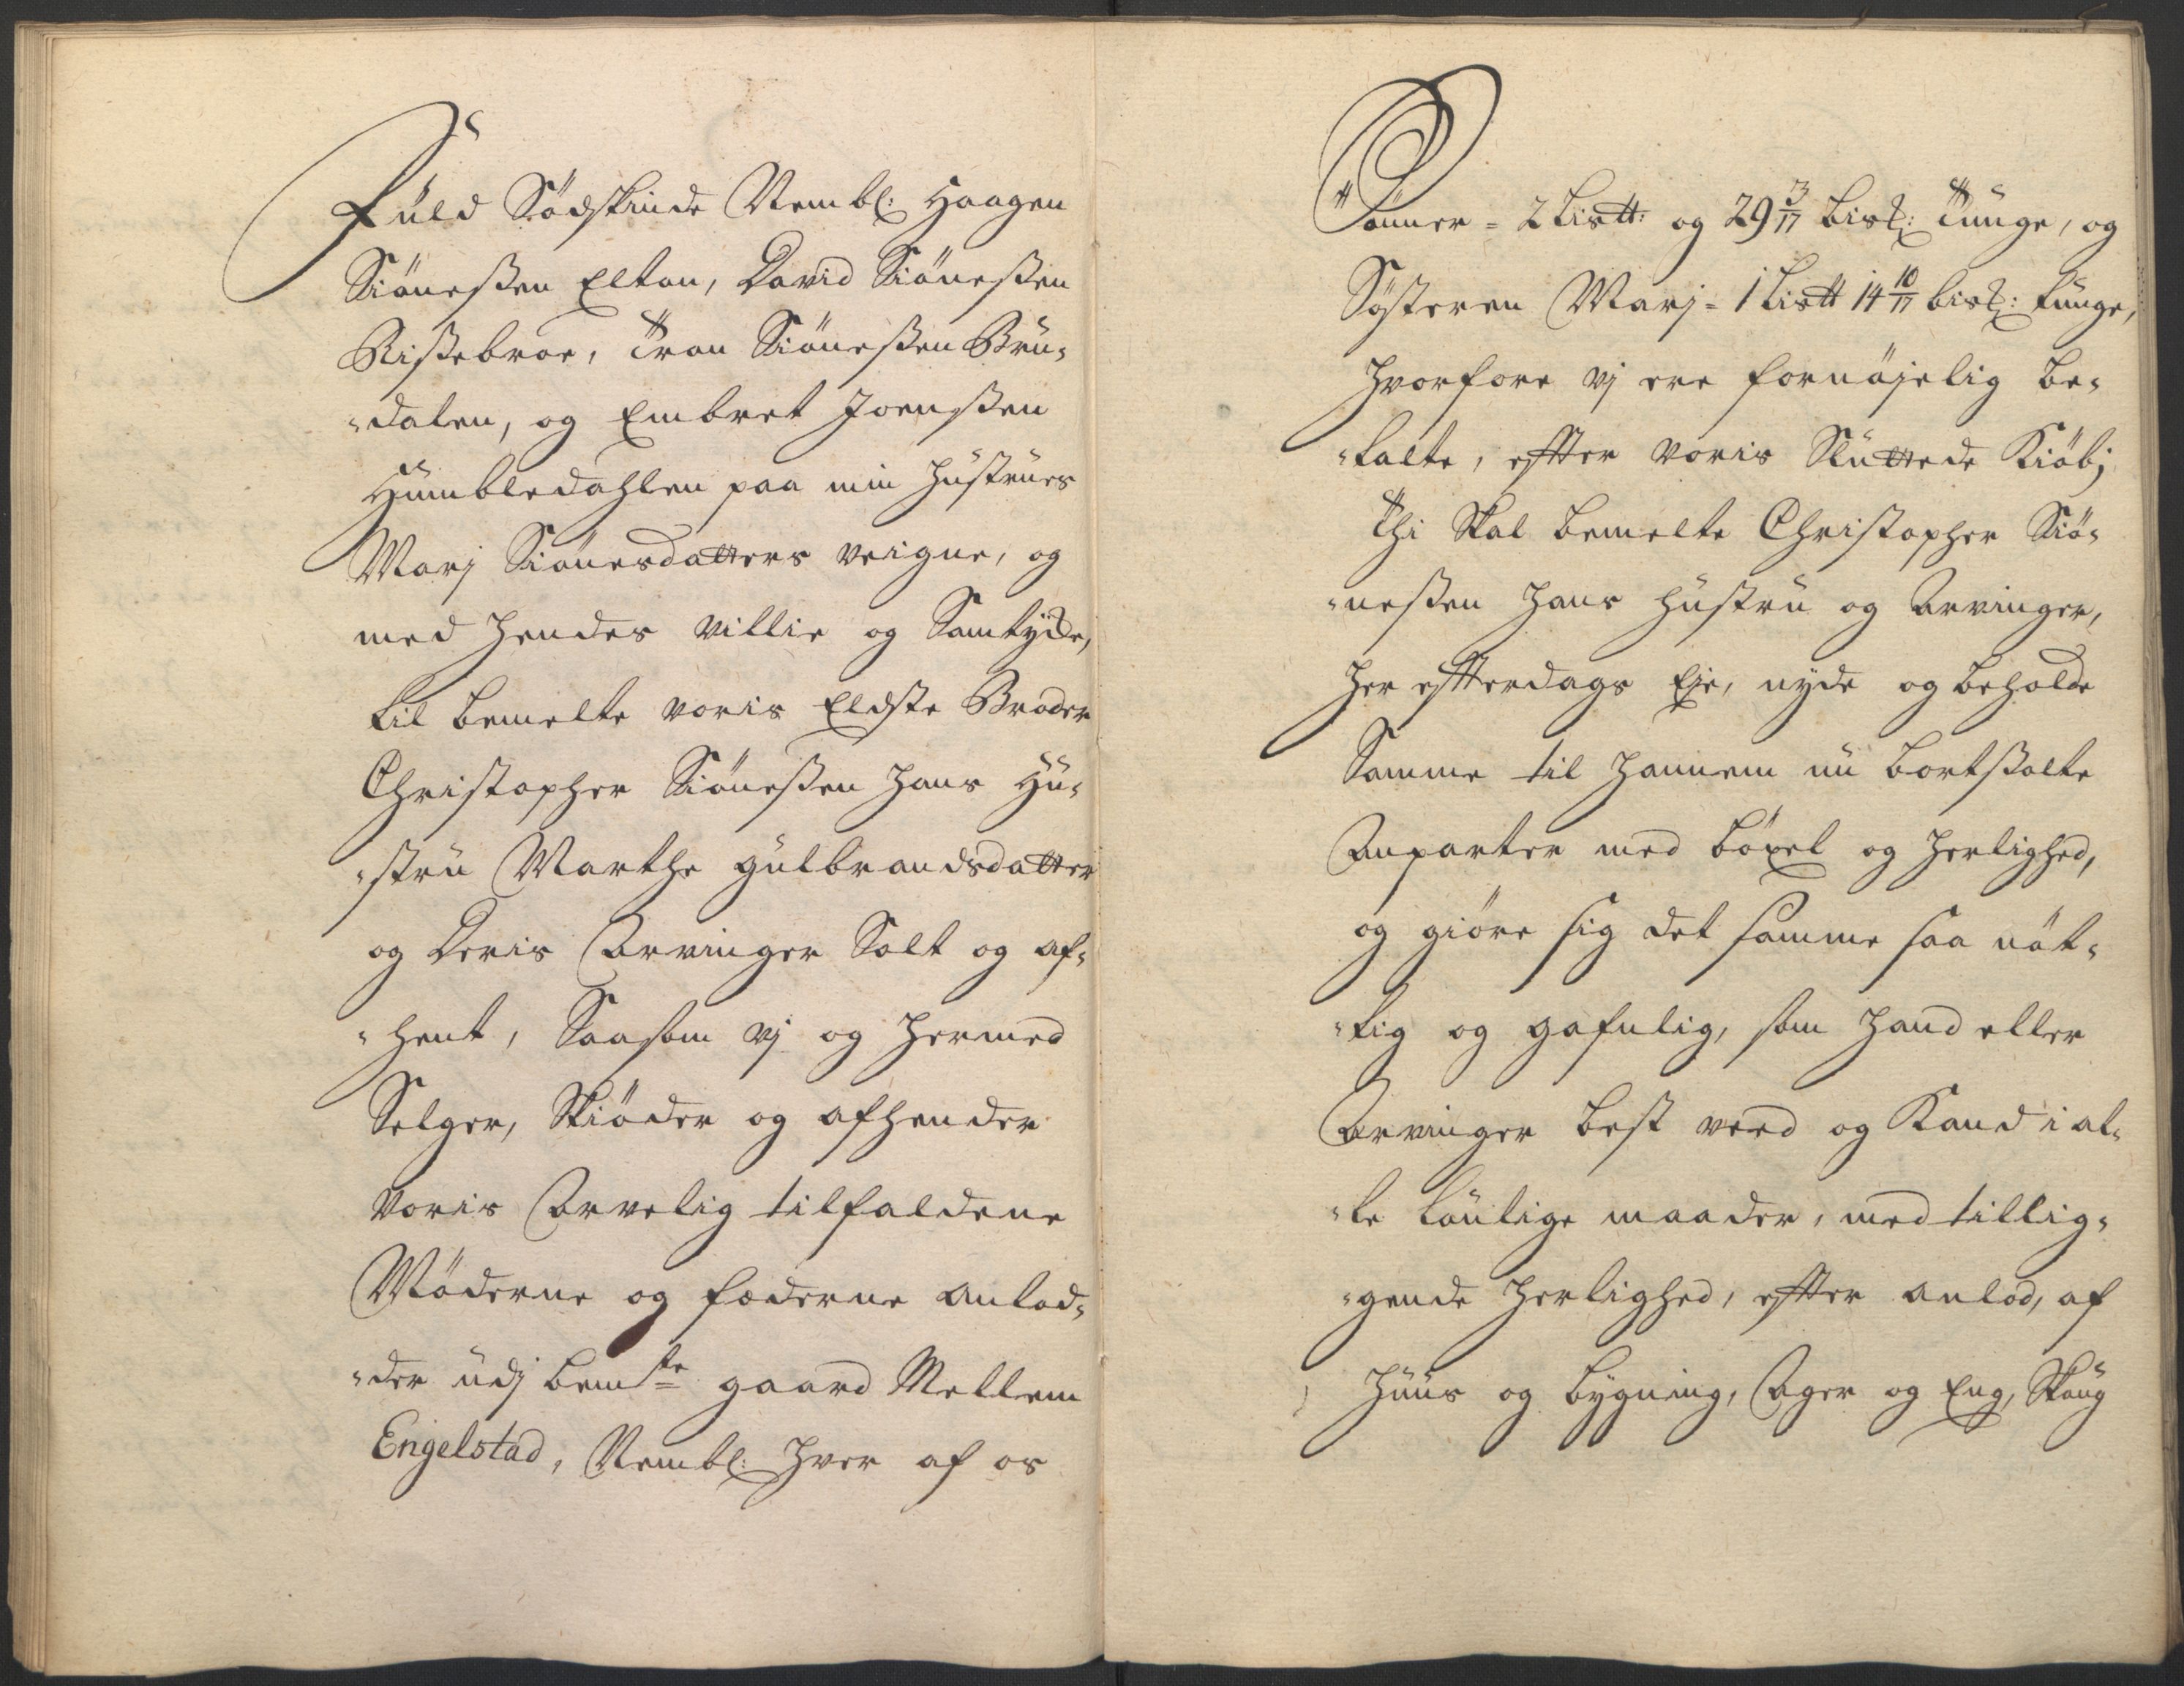 Fuld Södskinde Nembl: Haagen
Siöneßen Elton, David Siöneßen
Rißebroe, Tron Siöneßen Bru-
-dalen, og Embret Joenßen
Humbledahlen paa min Hustrues
Marj Siönesdatters veigne, og
med hendes villie og Samtyche,
til bemelte voris Eldste Broder
Christopher Siöneßen hans Hu-
-stru Marthe gulbrandsdatter
og Deris Arvinger Solt og af-
-hent, Saasom vj og hermed
Selger, Skiöder og afhender
voris Arvelig tilfaldene
Möderne og fæderne anlod-
-der udj bemte gaard Mellem
Engelstad, Nembl: hver af os
Sönner = 2 Lis℔: og 29 3/17 bisl: Tunge, og
Sösteren Marj = 1 Lis℔ 14 10/17 bisl: tunge,
hvorfore vj ere fornöjelig be-
-talte, efter voris Sluttede Kiöb;
Thi Skal bemelte Christopher Siö-
-neßen hans hustru og Arvinger,
her efterdags Eje, nyde og beholde
Samme til hannem nu bortsolte
Anparter med böxel og herlighed,
og giöre sig det samme saa nöt-
-tig og gafnlig, som hand eller
Arvinger best veed og Kand i al-
-le loulige maader, med tillig-
-gende herlighed, efter anlod, af
Huus og bygning, Ager og Eng, Skoug